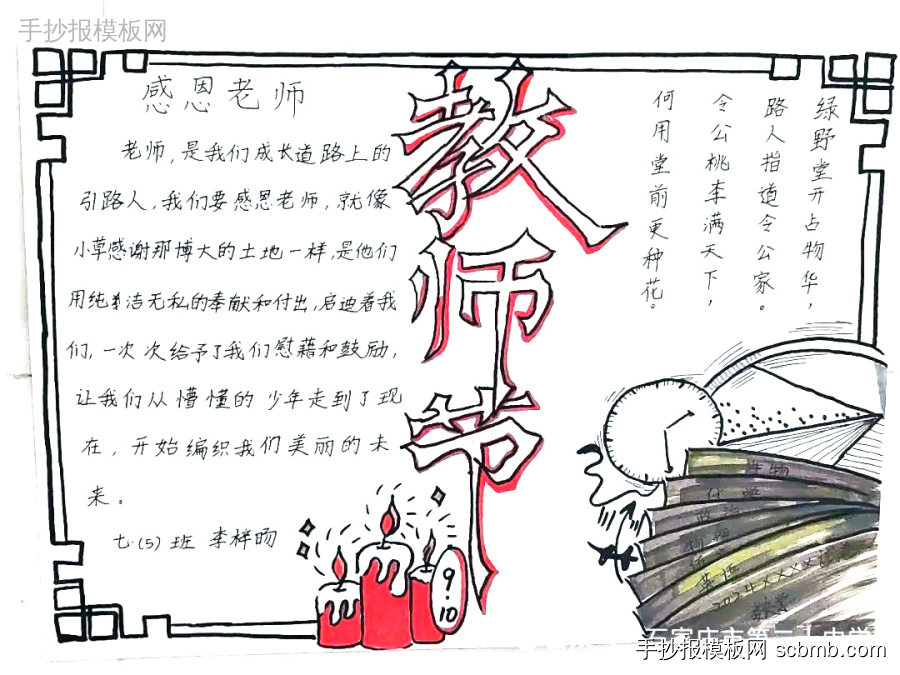 手抄报模板网
感恩老师
老师，是我们成长道路上的
引路人，我们要感恩老师，就像
小草感谢那博大的土地一样，是他们
用纯洁无私的奉献和付出，启迪着我
们，一次次给予了我们慰藉和鼓励，
让我们从懵懂的少年走到了现
在，开始编织我们美丽的未
来。
七.(5)班 李梓旸
教师节
9.10
绿野堂开占物华，
路人指道令公家。
令公桃李满天下，
何用堂前更种花。
生物
政治
物理
英语
石家庄市第二十中学
手抄报模板网 scbmb.com